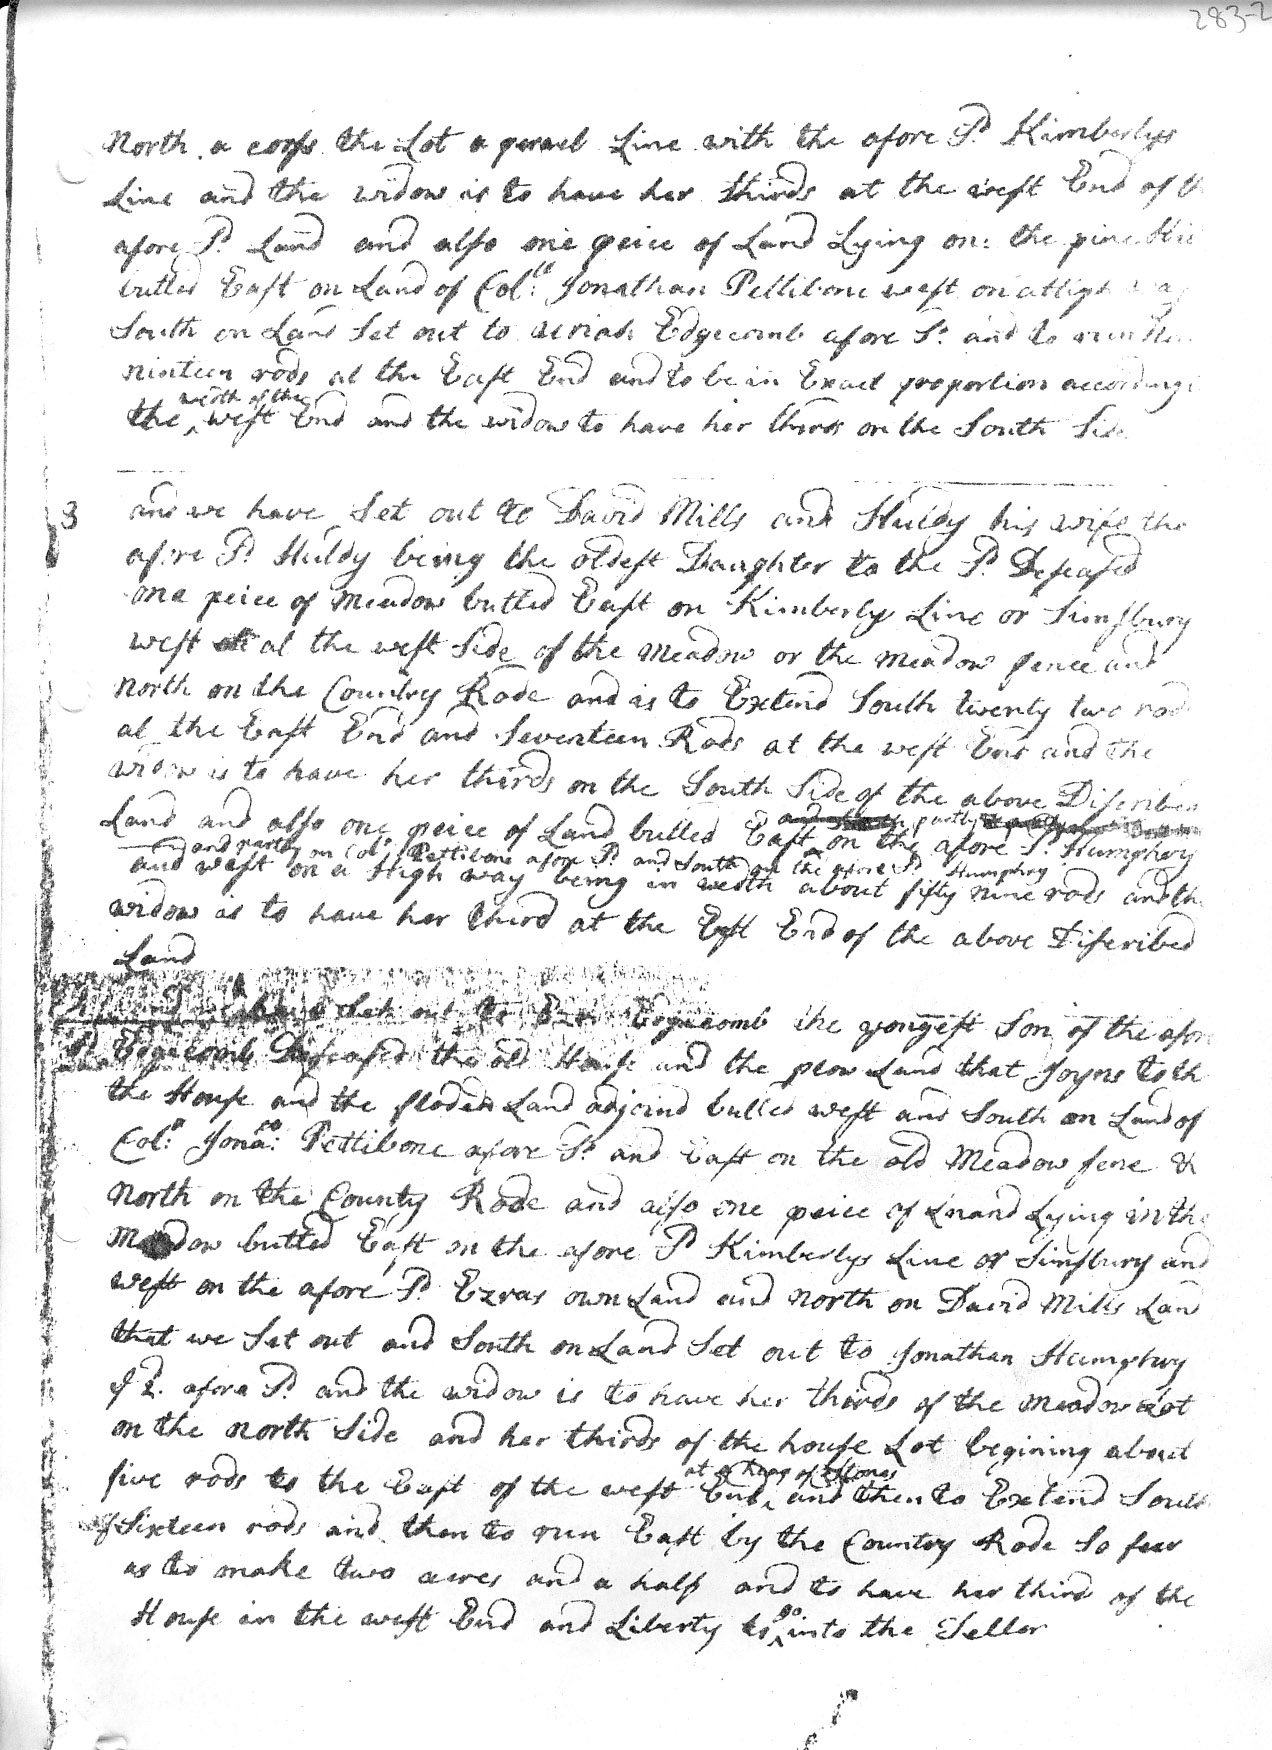 283-2
North a corss the Lot a perrael Line with the afore Sd Kimberlys
Line and the widow is to have her thirds at the west End of
afore Sd Land and also one peice of Land Lying on the pine
butted East on Land of Coll: Jonathan Pettibone west on
South on Land Set out to Uriah Edgecomb afore Sd and to run
ninteen rods at the East End and to be in Exact proportion according
wedth of the
the ‸ west End and the widow to have her thirds on the South Side
3 and we have Set out to David Mills and Huldy his wife the
afore Sd Huldy being the oldest Daughter to the Sd Deseased
one peice of meadow butted East on Kimberly Line or Simsbury
west at the west Side of the meadow or the meadow fence and
North on the Country Rode and is to Extend South twenty two rods
at the East End and Seventeen Rods at the west End and the
widow is to have her thirds on the South Side of the above Discribed
partly
Land and also one peice of Land butted East ‸ on the afore Sd Humphry
and partly on Coll Pettibone afore Sd and South on the afore Sd Humphry
and west on a High way being in wedth about fifty nine rods and
widow is to have her third at the East End of the above Discribed
Land
Set out to Ezra Edgecomb the yongest Son of the afore
Sd Edgecomb Deseased the old House and the plow Land that Joyns to
the House and the Land adjoind butted west and South on Land of
Coll: Jona: Pettibone afore Sd and East on the old Meadow fene &
North on the County Rode and also one peice of Lnand Lying in the
Meadow butted East on the afore Sd Kimberlys Line or Simsbury and
west on the afore Sd Ezras own Land and north on David Mills Land
that we Set out and South on Land Set out to Jonathan Humphry
afore Sd and the widow is to have her thirds of the meadow Lot
on the north Side and her thirds of the house Lot begining about
at a heap of Stones
five rods to the East of the west End ‸ and then to Extend South
Sixteen rods and then to run East by the Country Rode So fear
as to make two acres and a half and to have her third of the
go
House in the west End and Liberty to ‸ into the Sellor